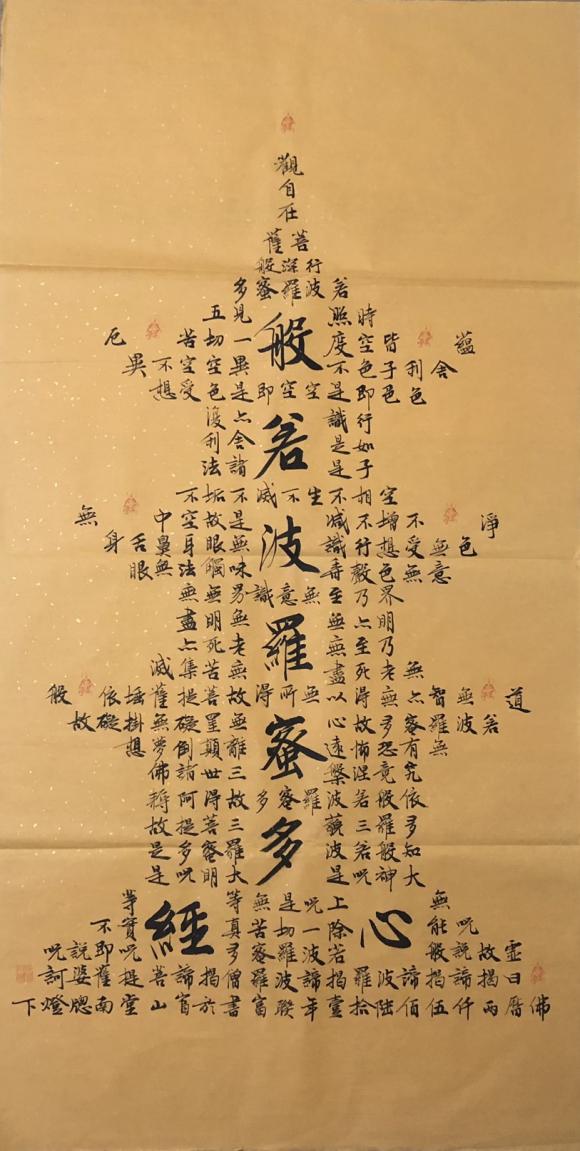 觀
自
在
菩薩
行深般
若波羅蜜多
時照見五
蘊皆空度一切苦厄
舍利子色不異空空異
色即是空空即是色受想
行識亦復
如是舍利
子是諸法
空相不生不滅垢不
淨不增不減是故空中無
色無受想行識無眼耳鼻舌身
意無色聲香味觸法無眼
界乃至無意識界無無
明亦無無明盡
乃至無老死亦
無老死盡無苦集滅
道無智亦無得以無所得故菩提薩埵依般
若波羅蜜多故心無罣礙無掛礙故
無有恐怖遠離顛倒夢想
究竟涅槃三世諸佛
依般若波羅蜜多故得阿耨
多羅三藐三菩提故
知般若波羅蜜多是
大神咒是大明咒是
無上咒是無等等
咒能除一切苦真實不
虛故說般若波羅蜜多咒即說咒
曰揭諦揭諦波羅揭諦波羅僧揭諦菩提薩婆訶
佛曆兩仟伍佰陸拾壹年聯富書於富山堂南牕燈下
般若波羅蜜多心經